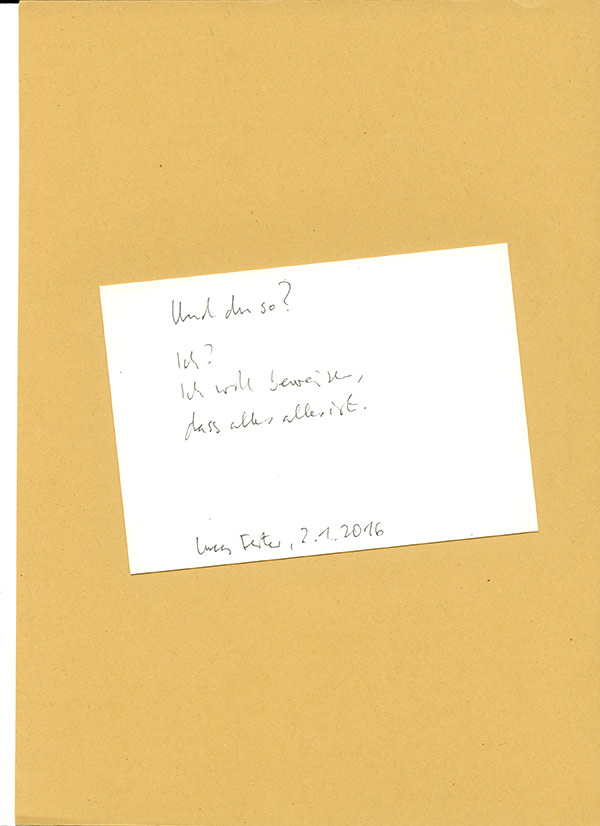 Und du so?
Ich?
Ich will beweisen,
dass alles alles ist.
2.1.2016